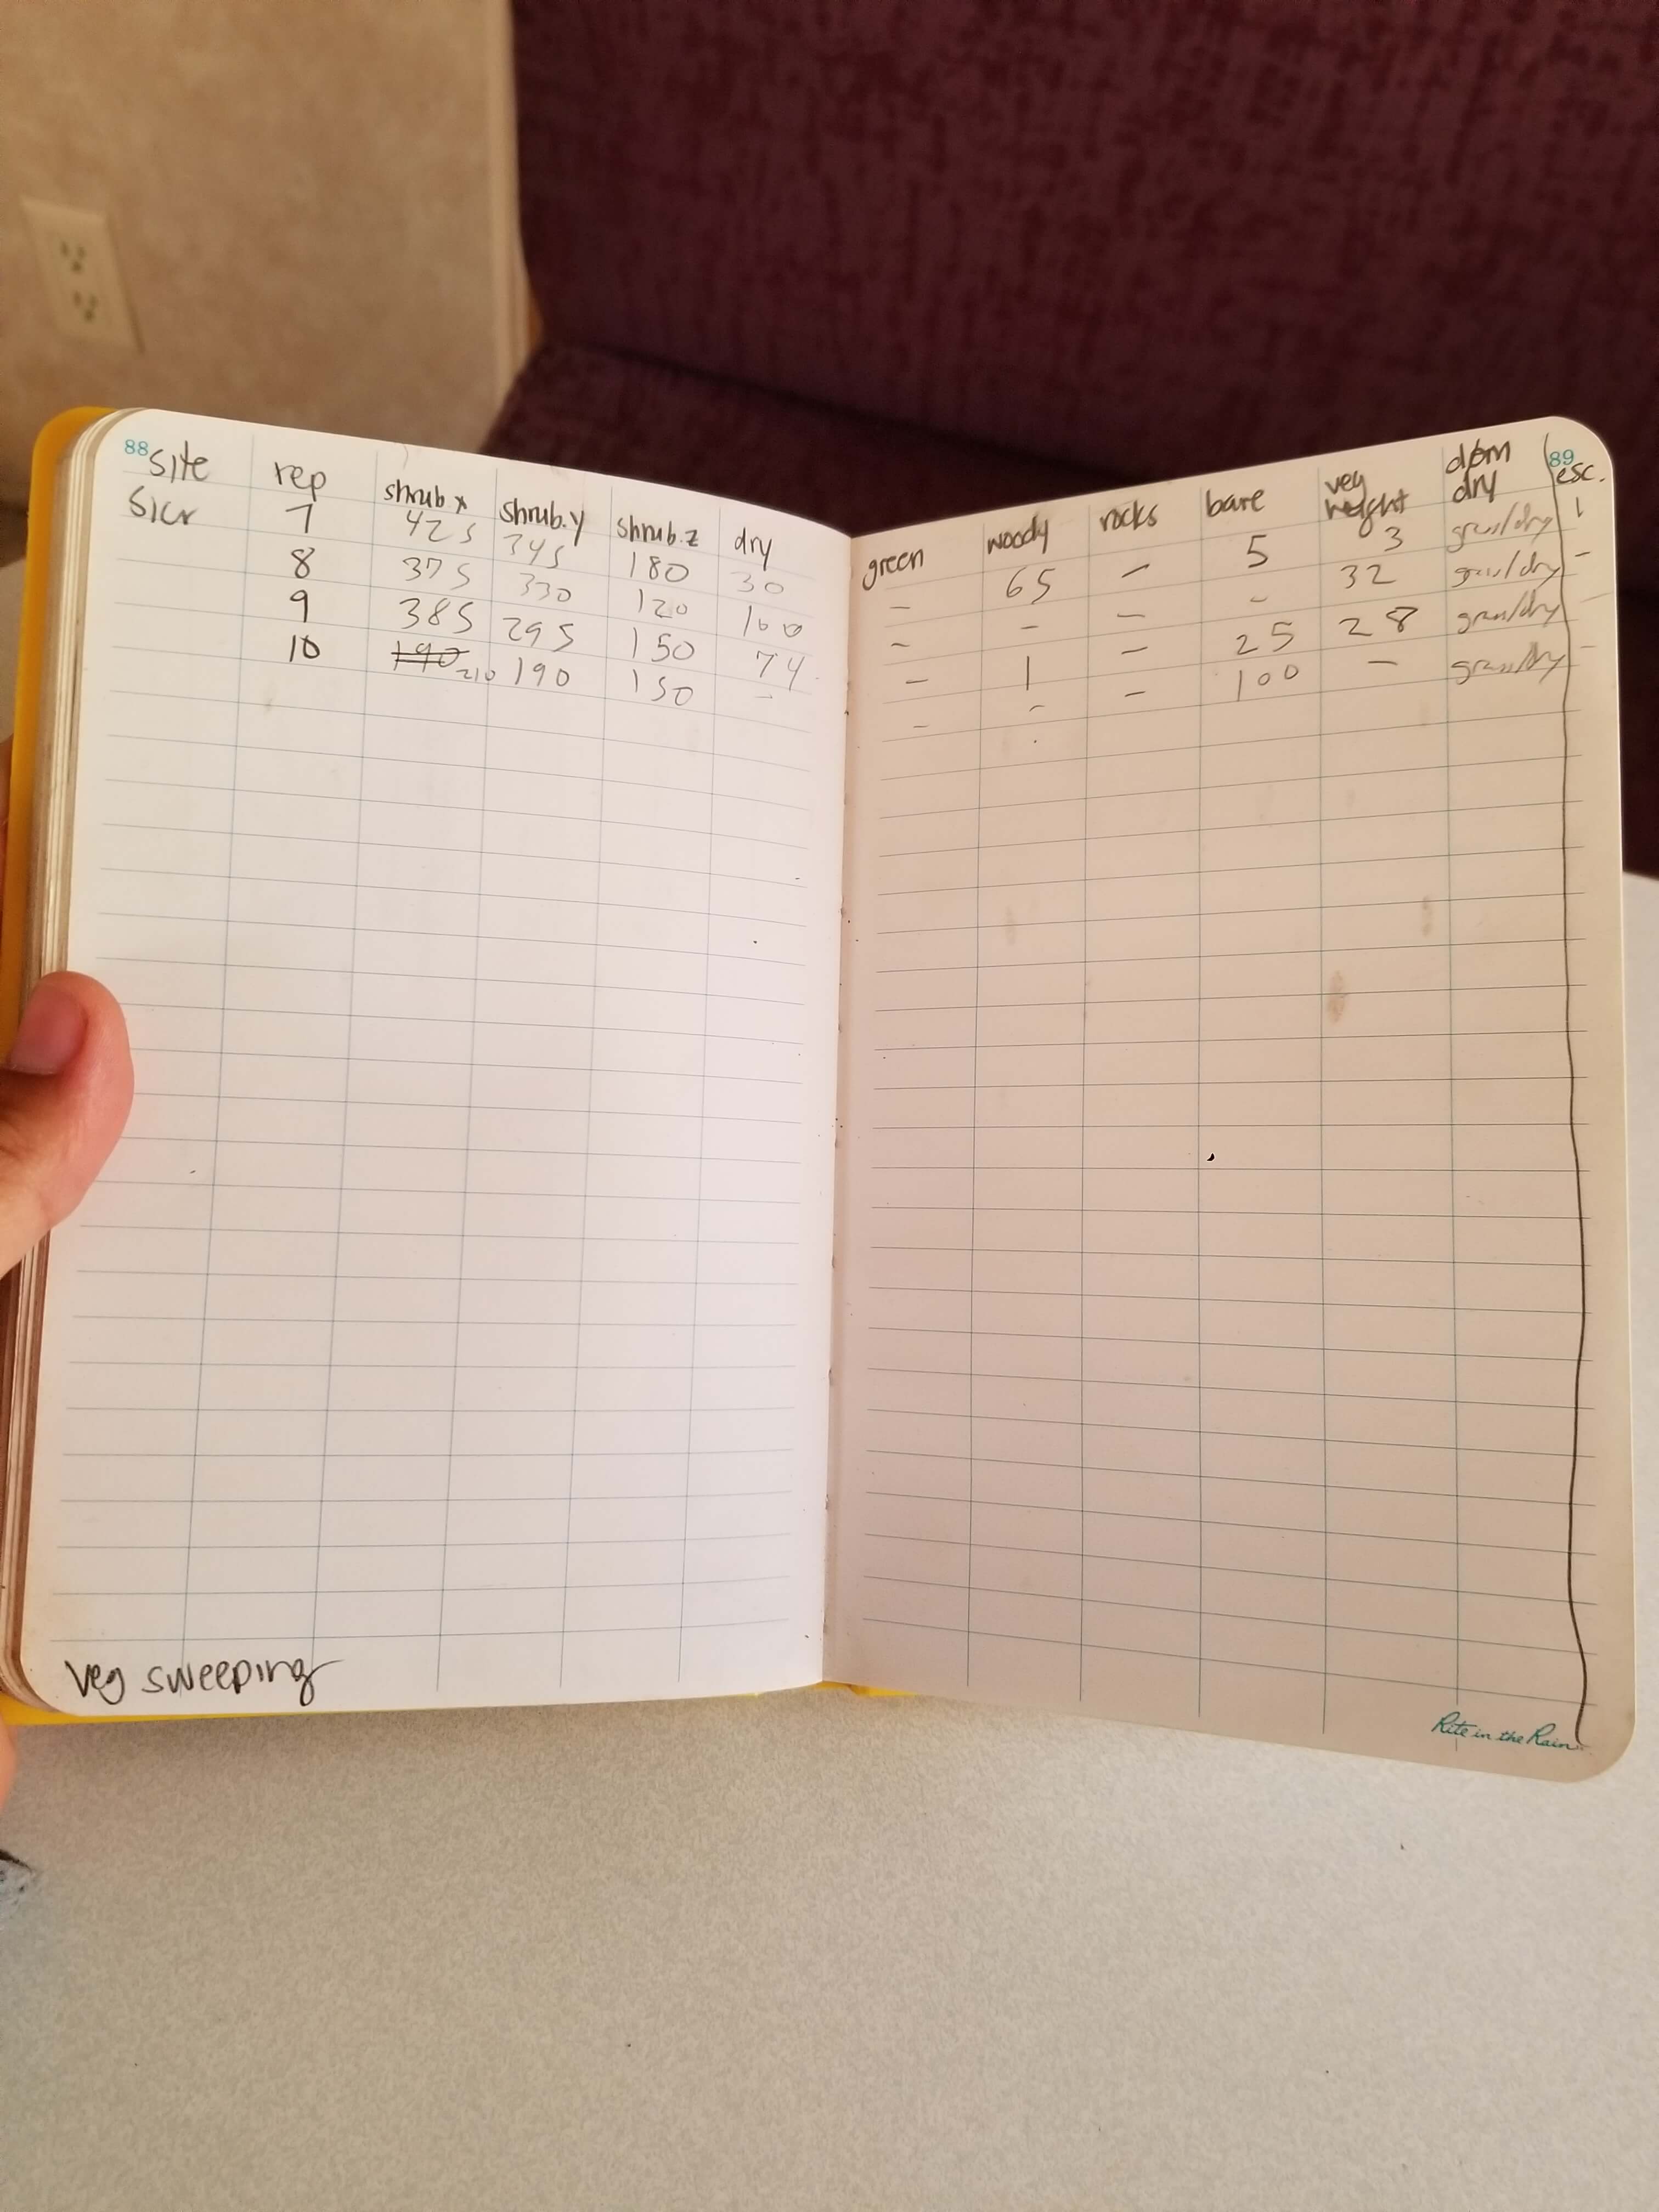 88 site rep shrub x shrub.y shrub.z dry
Sicr 7 425 345 180 30
8 375 330 120 100
9 385 295 150 74
10 190 210 190 150 -
veg sweeping
green woody rocks bare veg height dom dry 89 esc.
- 65 - 5 3 grass/dry 1
- - - - 32 grass/dry -
- 1 - 25 28 grass/dry -
- - - 100 - grass/dry
Rite in the Rain